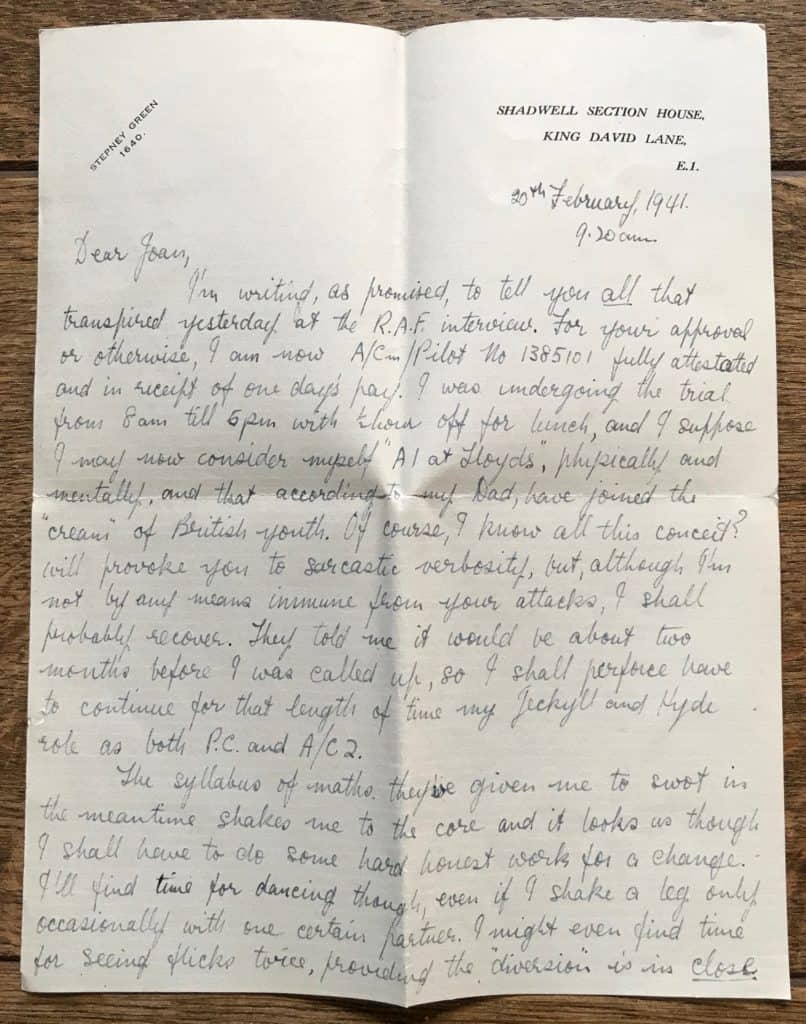 STEPNEY GREEN
1640.
SHADWELL SECTION HOUSE,
KING DAVID LANE,
E.1.
20th February, 1941.
9.20am.
Dear Joan,
I'm writing, as promised, to tell you all that
transpired yesterday at the R.A.F. interview. For your approval
or otherwise, I am now A/Cm/Pilot No 1385101 fully attestated
and in receipt of one day's pay. I was undergoing the trial
from 8am till 5pm with ½hour off for lunch, and I suppose
I may now consider myself "A1 at Lloyds", physically and
mentally, and that according to my Dad, have joined the
"cream" of British youth. Of course, I know all this conceit?
will provoke you to sarcastic verbosity, but, although I'm
not by any means immune from your attacks, I shall
probably recover. They told me it would be about two
months before I was called up, so I shall perforce have
to continue for that length of time my Jeckyll and Hyde
role as both P.C. and A/C2.
The syllabus of maths. they've given me to swot in
the meantime shakes me to the core and it looks as though
I shall have to do some hard honest work for a change.
I'll find time for dancing though, even if I shake a leg only
occasionally with one certain partner. I might even find time
for seeing flicks twice, providing the "diversion" is in close